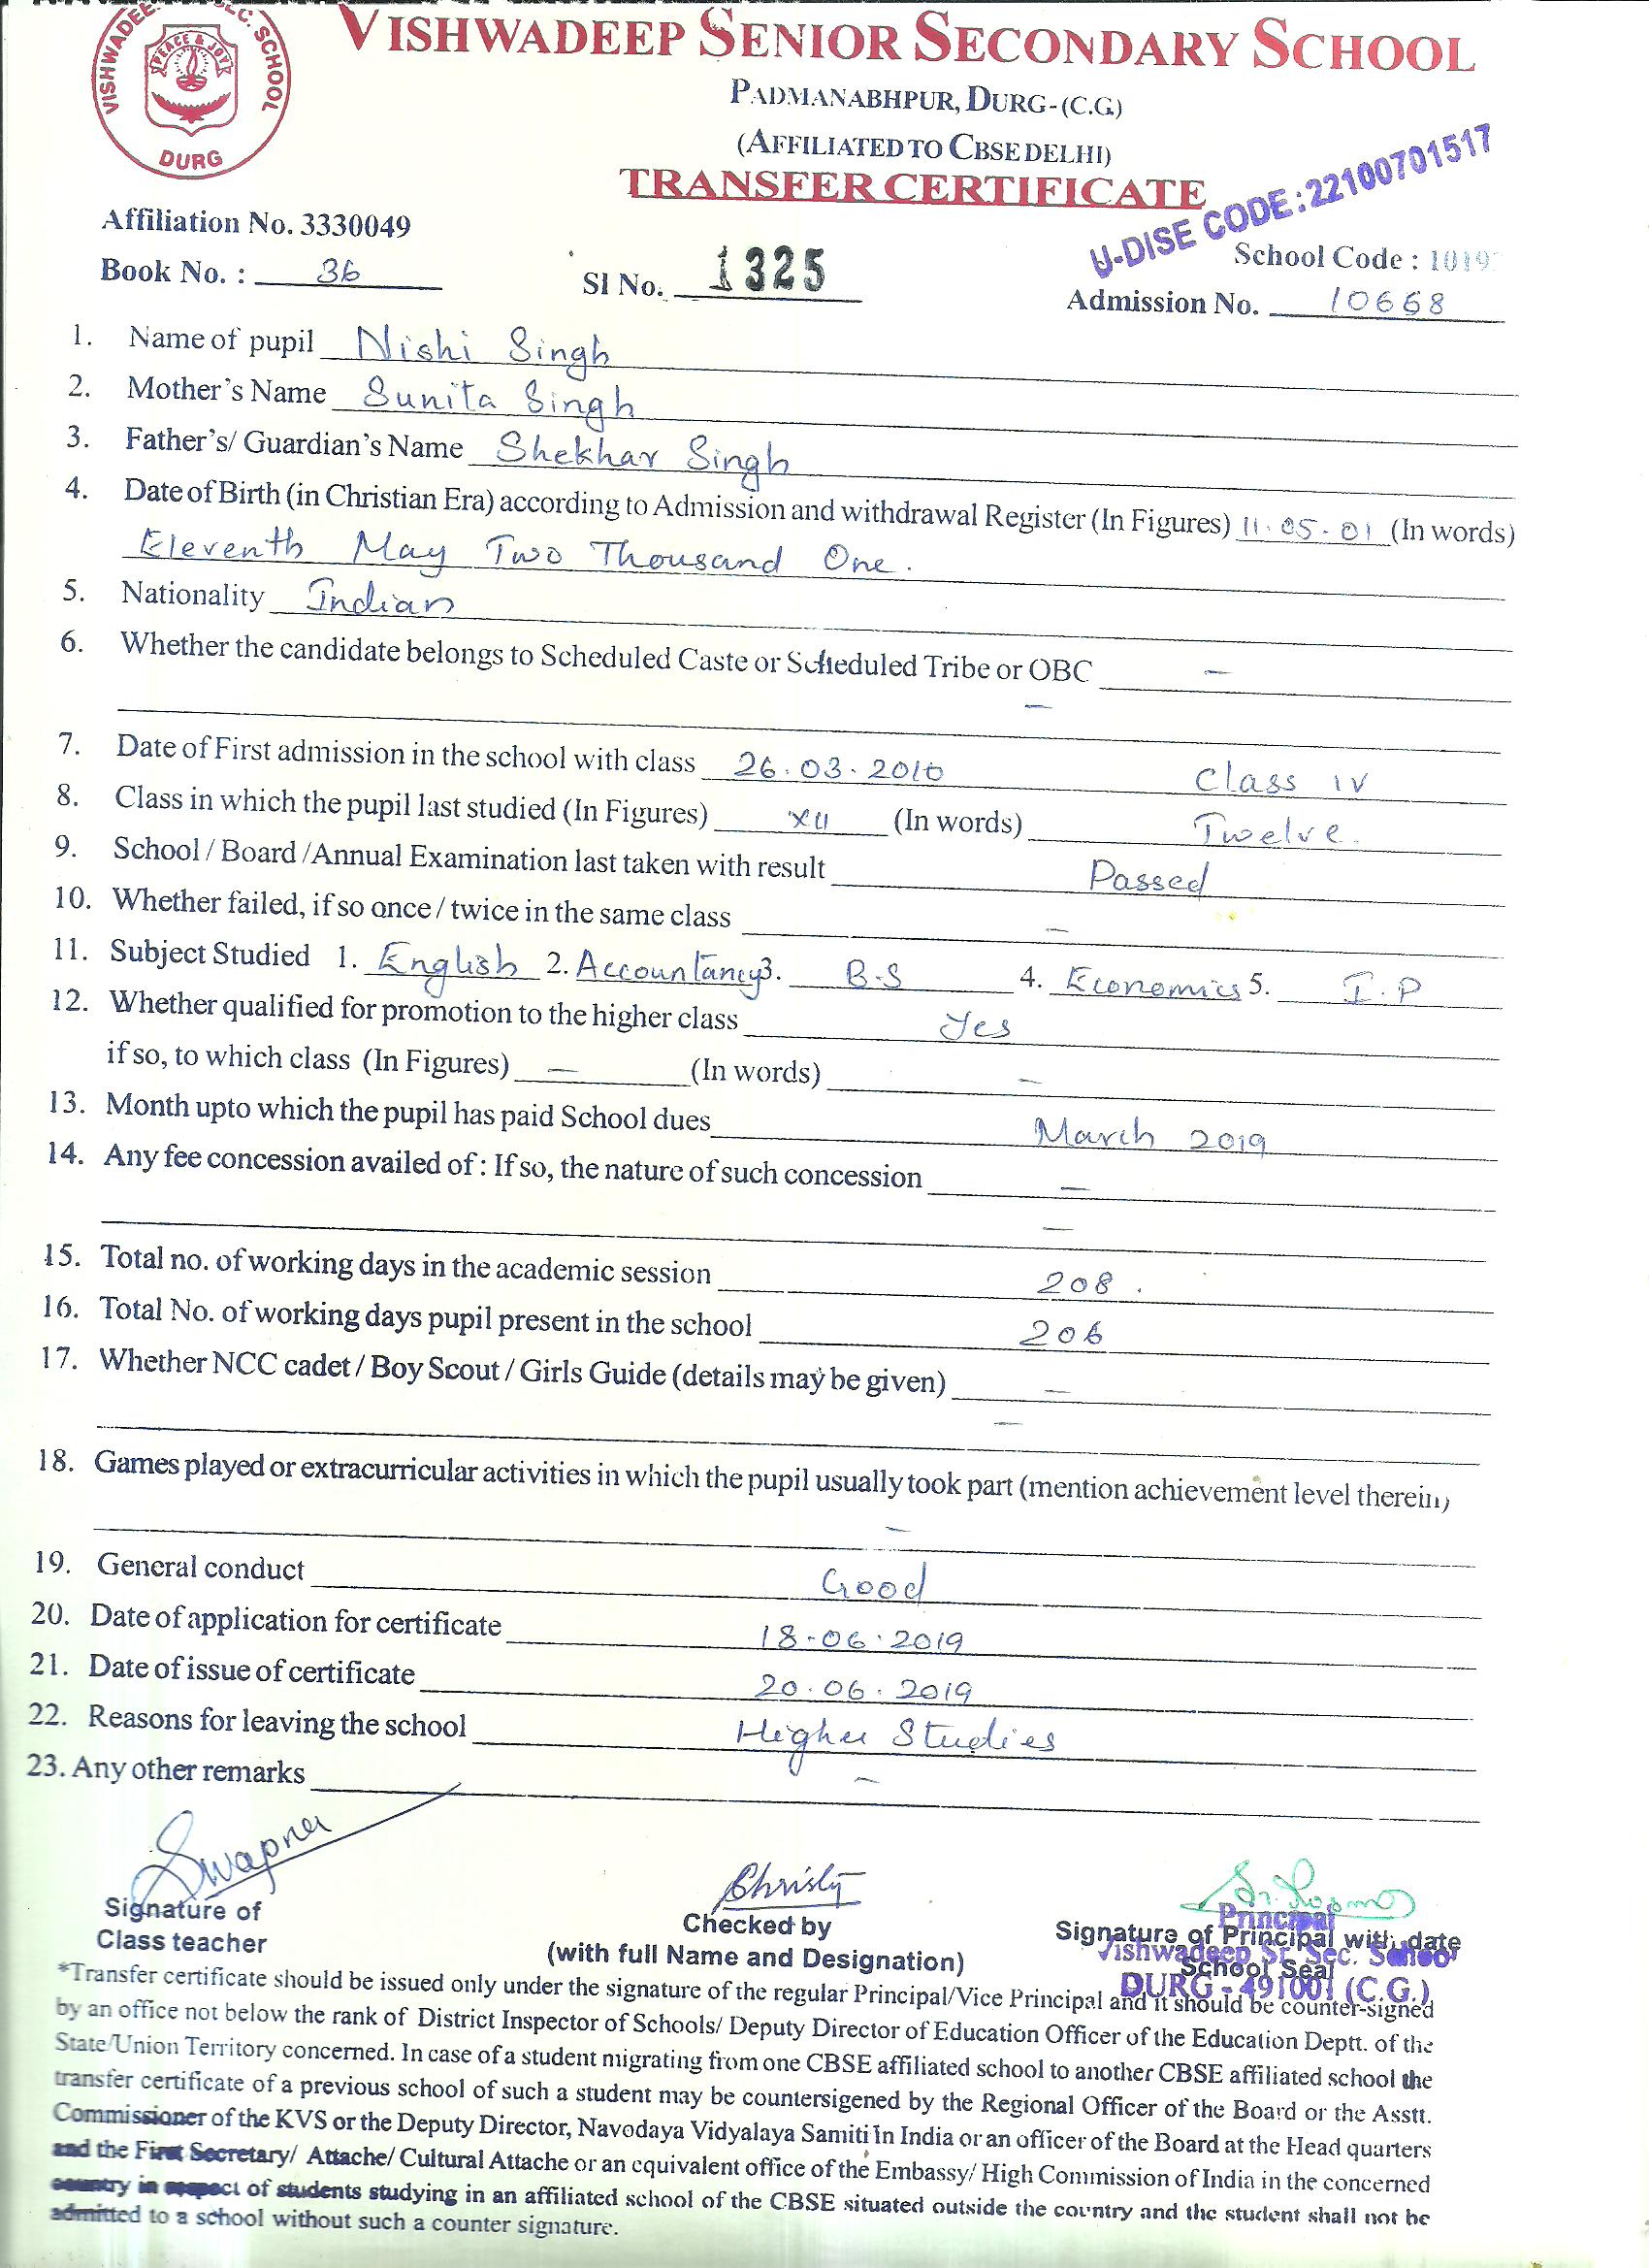 VISHWADEEP SENIOR SECONDARY SCHOOL
PEACE & JOY
DURG
PADMANABHPUR, DURG-(C.G.)
(AFFILIATED TO CBSE DELHI)
TRANSFER CERTIFICATE
U-DISE CODE: 22100701517
Affiliation No. 3330049
School Code :
Book No. : 36 Sl No. 1325 Admission No. 10668
1. Name of pupil Nishi Singh
2. Mother's Name Sunita Singh
3. Father's/ Guardian's Name Shekhar Singh
4. Date of Birth (in Christian Era) according to Admission and withdrawal Register (In Figures) 11.05.01 (In words)
Eleventh May Two Thousand One.
5. Nationality Indian
6. Whether the candidate belongs to Scheduled Caste or Scheduled Tribe or OBC –
–
7. Date of First admission in the school with class 26.03.2010 Class IV
8. Class in which the pupil last studied (In Figures) XII (In words) Twelve.
9. School / Board /Annual Examination last taken with result Passed
10. Whether failed, if so once / twice in the same class –
11. Subject Studied 1. English 2. Accountancy 3. B.S 4. Economics 5. I.P
12. Whether qualified for promotion to the higher class Yes
if so, to which class (In Figures) – (In words) –
13. Month upto which the pupil has paid School dues March 2019
14. Any fee concession availed of : If so, the nature of such concession –
–
15. Total no. of working days in the academic session 208.
16. Total No. of working days pupil present in the school 206
17. Whether NCC cadet / Boy Scout / Girls Guide (details may be given) –
–
18. Games played or extracurricular activities in which the pupil usually took part (mention achievement level therein)
–
19. General conduct Good
20. Date of application for certificate 18.06.2019
21. Date of issue of certificate 20.06.2019
22. Reasons for leaving the school Higher Studies
23. Any other remarks –
Swapna
Christy
Signature of
Class teacher
Checked by
(with full Name and Designation)
Principal
Signature of Principal with date
Vishwadeep Sr. Sec. School
School Seal
DURG - 491001 (C.G.)
*Transfer certificate should be issued only under the signature of the regular Principal/Vice Principal and it should be counter-signed
by an office not below the rank of District Inspector of Schools/ Deputy Director of Education Officer of the Education Deptt. of the
State/Union Territory concerned. In case of a student migrating from one CBSE affiliated school to another CBSE affiliated school the
transfer certificate of a previous school of such a student may be countersigned by the Regional Officer of the Board or the Asstt.
Commissioner of the KVS or the Deputy Director, Navodaya Vidyalaya Samiti in India or an officer of the Board at the Head quarters
and the First Secretary/ Attache/ Cultural Attache or an equivalent office of the Embassy/ High Commission of India in the concerned
country in respect of students studying in an affiliated school of the CBSE situated outside the country and the student shall not be
admitted to a school without such a counter signature.